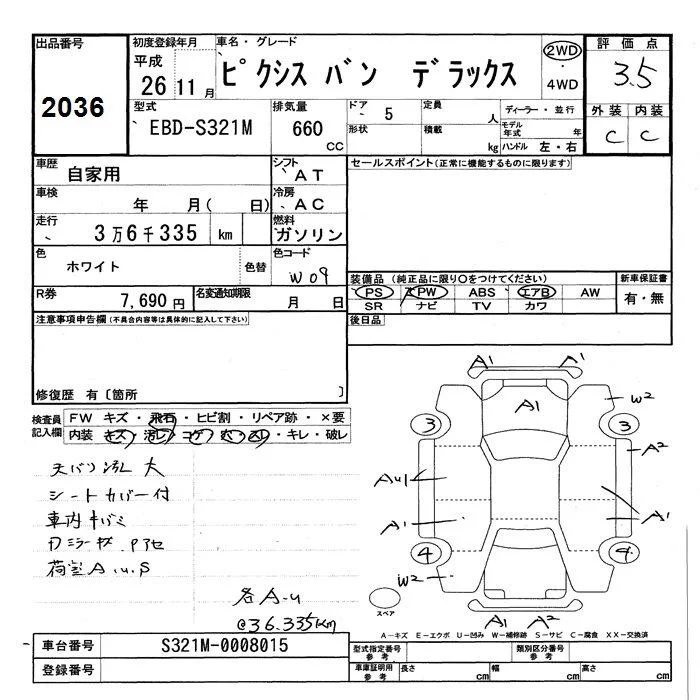 出品番号 初度登録年月 車名・グレード 評価点
2036 平成 26 11月 ピクシス バン デラックス 2WD ・ 4WD 3.5
型式 排気量 ドア 5 定員 人 ディーラー・並行 外装 内装
EBD-S321M 660 CC 形状 積載 kg モデル年式 年 ハンドル 左・右 C C
車歴 自家用 シフト AT セールスポイント(正常に機能するものに限ります)
車検 年 月( 日) 冷房 AC
走行 3万6千335 km 燃料 ガソリン
色 ホワイト 色替 色コード W09
装備品(純正品に限り○をつけてください) 新車保証書
R券 7,690円 名変通知期限 月 日 PS PW ABS エアB AW 有・無
SR ナビ TV カワ
注意事項申告欄(不具合内容等は具体的に記入して下さい) 後日品
修復歴 有〔箇所 〕
検査員記入欄 FW キズ・飛石・ヒビ割・リペア跡・×要
内装 キズ・汚レ・コゲ・穴・スレ・キレ・破レ
天バリ汚レ 大
シートカバー付
車内キバミ
荷室A.u.S
各A-u
@36.335km
A1 A1
A1 W2
3 3
A2
Au1
A1 A1
4 4
W2
スペア
A1 A2
A-キズ E-エクボ U-凹み W-補修跡 S-サビ C-腐食 XX-交換済
車台番号 S321M-0008015 型式指定番号 参考 類別区分番号 参考
登録番号 車庫証明用 参考 長さ cm 幅 cm 高さ cm